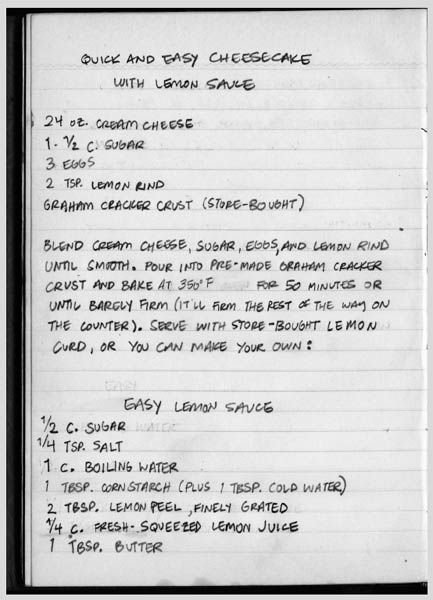 QUICK AND EASY CHEESECAKE
WITH LEMON SAUCE
24 OZ. CREAM CHEESE
1-1/2 C. SUGAR
3 EGGS
2 TSP. LEMON RIND
GRAHAM CRACKER CRUST (STORE-BOUGHT)
BLEND CREAM CHEESE, SUGAR, EGGS, AND LEMON RIND
UNTIL SMOOTH. POUR INTO PRE-MADE GRAHAM CRACKER
CRUST AND BAKE AT 350°F FOR 50 MINUTES OR
UNTIL BARELY FIRM (IT'LL FIRM THE REST OF THE WAY ON
THE COUNTER). SERVE WITH STORE-BOUGHT LEMON
CURD, OR YOU CAN MAKE YOUR OWN:
EASY LEMON SAUCE
1/2 C. SUGAR
1/4 TSP. SALT
1 C. BOILING WATER
1 TBSP. CORNSTARCH (PLUS 1 TBSP. COLD WATER)
2 TBSP. LEMON PEEL, FINELY GRATED
1/4 C. FRESH-SQUEEZED LEMON JUICE
1 TBSP. BUTTER